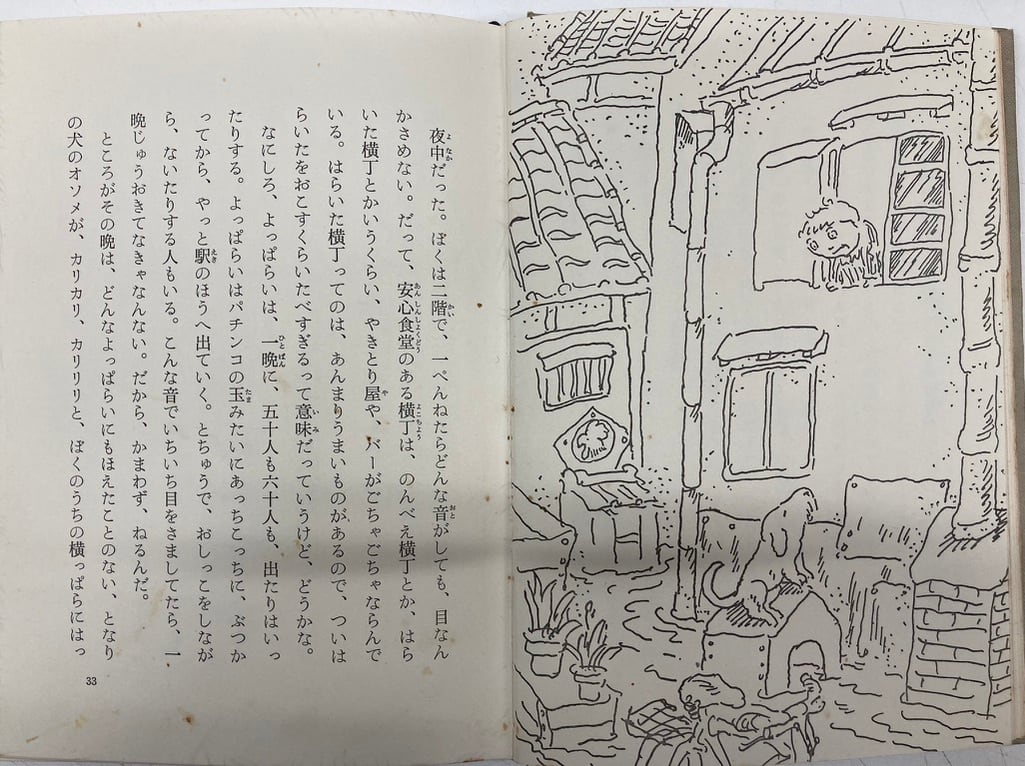 夜中だった。ぼくは二階で、一ぺんねたらどんな音がしても、目なん
かさめない。だって、安心食堂のある横丁は、のんべえ横丁とか、はら
いた横丁とかいうくらい、やきとり屋や、バーがごちゃごちゃならんで
いる。はらいた横丁ってのは、あんまりうまいものがあるので、ついは
らいたをおこすくらいたべすぎるって意味だっていうけど、どうかな。
なにしろ、よっぱらいは、一晩に、五十人も六十人も、出たりはいっ
たりする。よっぱらいはパチンコの玉みたいにあっちこっちに、ぶつか
ってから、やっと駅のほうへ出ていく。とちゅうで、おしっこをしなが
ら、ないたりする人もいる。こんな音でいちいち目をさましてたら、一
晩じゅうおきてなきゃなんない。だから、かまわず、ねるんだ。
ところがその晩は、どんなよっぱらいにもほえたことのない、となり
の犬のオソメが、カリカリ、カリリリと、ぼくのうちの横っぱらにはっ
33